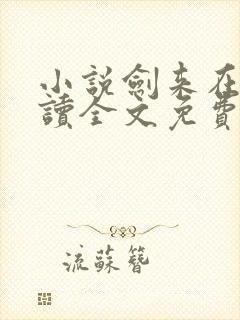 小說劍來在
讀全文免費
流蘇簪